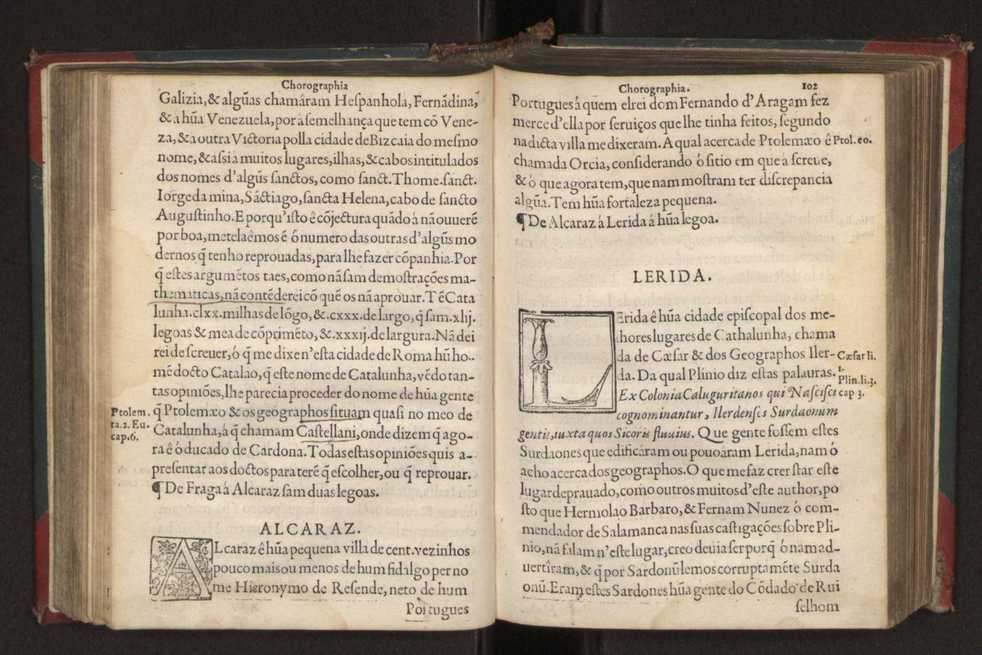 Chorographia
Galizia, & algũas chamáram Hespanhola, Fernãdina,
& a hũa Venezuela, por á semelhança que tem cõ Vene-
za, & a outra Victoria polla cidade de Bizcaia do mesmo
nome, & assi á muitos lugares, ilhas, & cabos intitulados
dos nomes d'algũs sanctos, como sanct. Thome. sanct.
Iorge da mina, Sãctiago, sancta Helena, cabo de sancto
Augustinho. E porqu'isto ê cõjectura quãdo á nã ouuerẽ
por boa, metelaêmos ê ó numero das outras d'algũs mo
dernos q̃ tenho reprouadas, para lhe fazer cõpanhia. Por
q̃ estes argumẽtos taes, como nã sam demostrações ma-
thematicas, nã contẽderei cõ quẽ os nã aprouar. Tẽ Cata
lunha. clxx. milhas de lõgo, &. cxxx. de largo, q̃ sam. xlij.
legoas & mea de cõprimẽto, &. xxxij. de largura. Nã dei
rei de screuer, ó q̃ me dixe n'esta cidade de Roma hũ ho-
mẽ docto Catalão, q̃ este nome de Catalunha, vẽdo tan-
tas opiniões, lhe parecia proceder do nome de hũa gente
Ptolem.
ta. 2. Eu.
cap. 6.
q̃ Ptolemæo & os geographos situam quasi no meo de
Catalunha, â q̃ chamam Castellani, onde dizem q̃ ago-
ra ê ó ducado de Cardona. Todas estas opiniões quis a-
presentar aos doctos para terẽ q̃ escolher, ou q̃ reprouar.
¶ De Fraga á Alcaraz sam duas legoas.
ALCARAZ.
ALcaraz ê hũa pequena villa de cent. vezinhos
pouco mais ou menos de hum fidalgo per no
me Hieronymo de Resende, neto de hum
Portugues
Chorographia. 102
Portugues á quem elrei dom Fernando d'Aragam fez
merce d'ella por seruiços que lhe tinha feitos, segundo
na dicta villa me dixeram. A qual acerca de Ptolemæo ê
Ptol. eo.
chamada Orcia, considerando ó sitio em que a screue,
& ó que agora tem, que nam mostram ter discrepancia
algũa. Tem hũa fortaleza pequena.
¶ De Alcaraz á Lerida á hũa legoa.
LERIDA.
LErida ê hũa cidade episcopal dos me-
lhores lugares de Cathalunha, chama
da de Cæsar & dos Geographos Iler-
Cæsar li.
1.
da. Da qual Plinio diz estas palauras.
Plin. li. 3.
cap 3.
Ex Colonia Caluguritanos qui Nascisci
cognominantur, Ilerdenses Surdaonum
gentis, iuxta quos Sicoris fluuius. Que gente fossem estes
Surdaones que edificáram ou pouoáram Lerida, nam ó
acho acerca dos geographos. O que me faz crer star este
lugar deprauado, como outros muitos d'este author, po
sto que Hermolao Barbaro, & Fernam Nunez ó com-
mendador de Salamanca nas suas castigações sobre Pli-
nio, nã falam n'este lugar, creo deuia ser porq̃ ó nam ad-
uertîram, & q̃ por Sardonũ lemos corruptamẽte Surda
onũ. Eram estes Sardones hũa gente do Cõdado de Rui
selhom